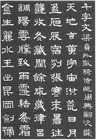 千字文梁員外散騎侍郎周興嗣次韻
天地玄黃宇宙洪荒日月
盈昃辰宿列張寒來暑往
秋收冬藏閏餘成歲律呂
調陽雲騰致雨露結為霜
金生麗水玉出崑岡劍號